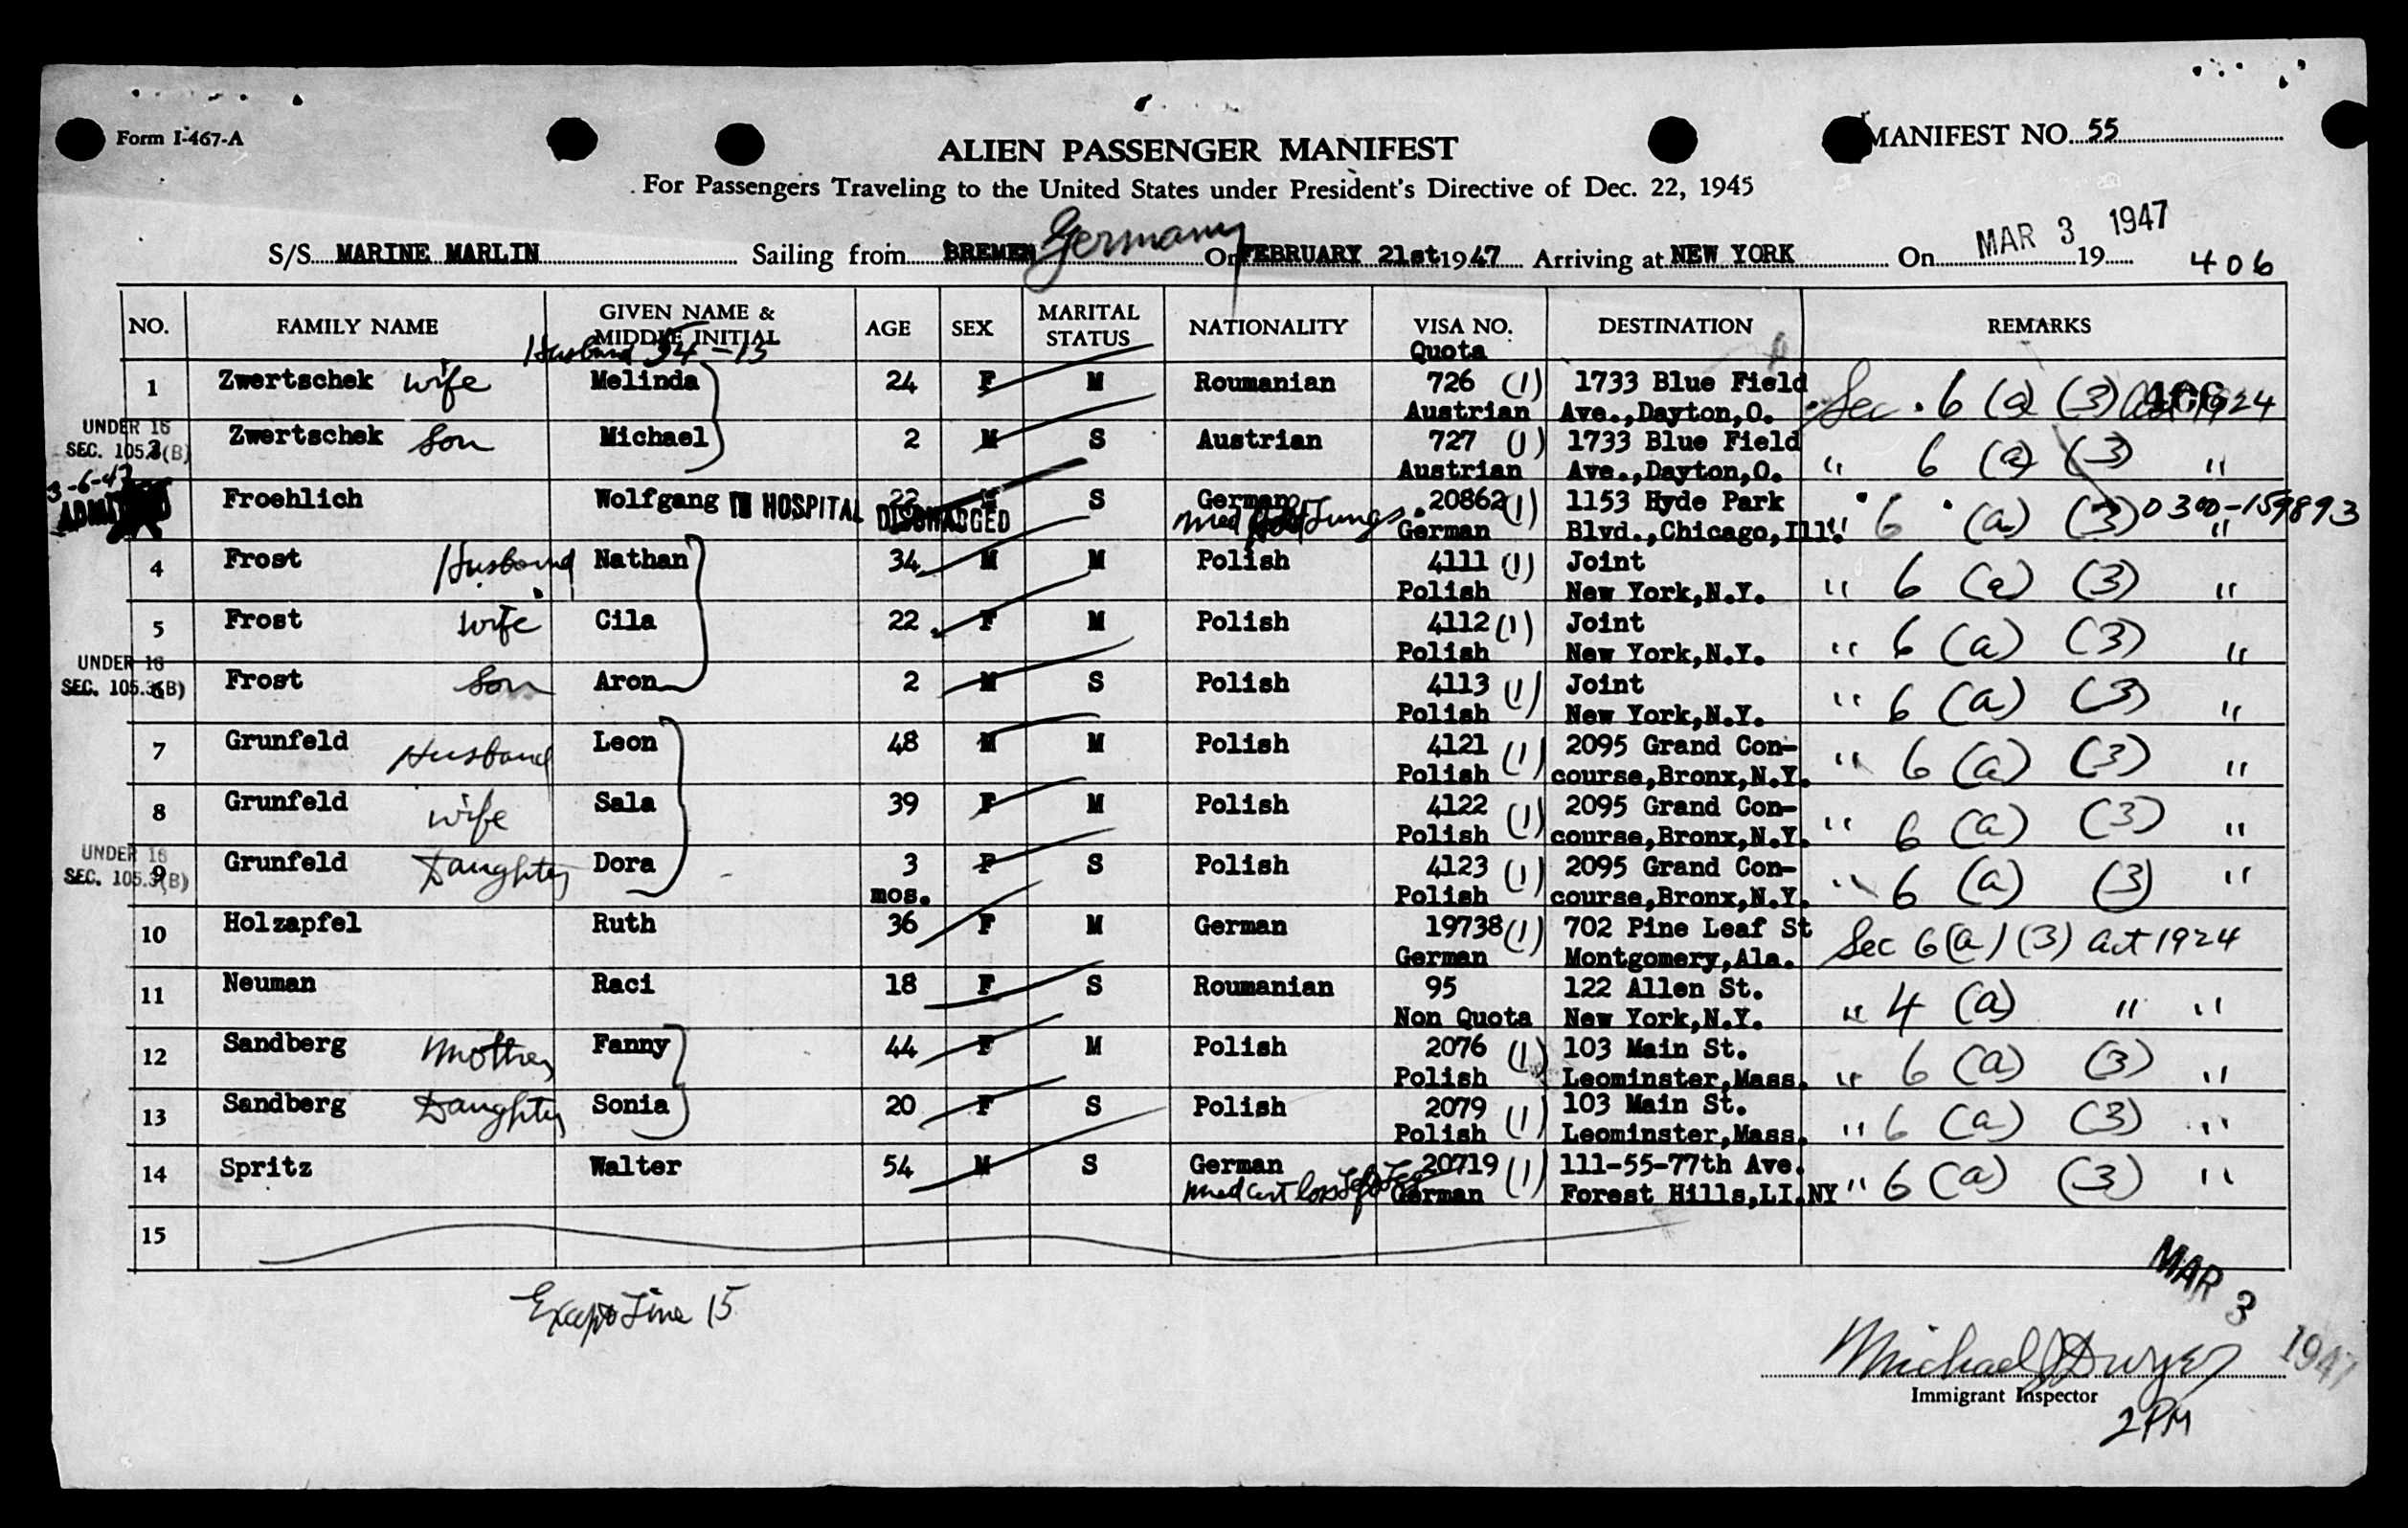 Form I-467-A
ALIEN PASSENGER MANIFEST
MANIFEST NO. 55
For Passengers Traveling to the United States under President's Directive of Dec. 22, 1945
S/S MARINE MARLIN Sailing from BREMEN Germany On FEBRUARY 21st 1947 Arriving at NEW YORK On MAR 3 1947 19
406
NO. FAMILY NAME GIVEN NAME & MIDDLE INITIAL AGE SEX MARITAL STATUS NATIONALITY VISA NO. DESTINATION REMARKS
Husband 54-15 Quota
1 Zwertschek wife Melinda 24 F M Roumanian 726 (1) 1733 Blue Field Sec. 6 (a) (3) Act 1924
Austrian Ave.,Dayton,O.
UNDER 16
SEC. 105.3(B)
2 Zwertschek Son Michael 2 M S Austrian 727 (1) 1733 Blue Field " 6 (a) (3) "
Austrian Ave.,Dayton,O.
3-6-47
ADMITTED
Froehlich Wolfgang IN HOSPITAL DISCHARGED 22 M S German 20862 (1) 1153 Hyde Park " 6 (a) (3) 0300-159893 "
Med Lungs German Blvd.,Chicago,Ill.
4 Frost Husband Nathan 34 M M Polish 4111 (1) Joint " 6 (a) (3) "
Polish New York,N.Y.
5 Frost wife Cila 22 F M Polish 4112 (1) Joint " 6 (a) (3) "
Polish New York,N.Y.
UNDER 16
SEC. 105.3(B)
6 Frost Son Aron 2 M S Polish 4113 (1) Joint " 6 (a) (3) "
Polish New York,N.Y.
7 Grunfeld Husband Leon 48 M M Polish 4121 (1) 2095 Grand Con- " 6 (a) (3) "
Polish course,Bronx,N.Y.
8 Grunfeld wife Sala 39 F M Polish 4122 (1) 2095 Grand Con- " 6 (a) (3) "
Polish course,Bronx,N.Y.
UNDER 16
SEC. 105.3(B)
9 Grunfeld Daughter Dora 3 F S Polish 4123 (1) 2095 Grand Con- " 6 (a) (3) "
mos. Polish course,Bronx,N.Y.
10 Holzapfel Ruth 36 F M German 19738 (1) 702 Pine Leaf St Sec 6(a) (3) act 1924
German Montgomery,Ala.
11 Neuman Raci 18 F S Roumanian 95 122 Allen St. " 4 (a) " "
Non Quota New York,N.Y.
12 Sandberg Mother Fanny 44 F M Polish 2076 (1) 103 Main St. " 6 (a) (3) "
Polish Leominster,Mass.
13 Sandberg Daughter Sonia 20 F S Polish 2079 (1) 103 Main St. " 6 (a) (3) "
Polish Leominster,Mass.
14 Spritz Walter 54 M S German 20719 (1) 111-55-77th Ave. " 6 (a) (3) "
Med Cert loss Left Leg German Forest Hills,LI.NY
15
Except Line 15
MAR 3 1947
Michael J Dwyer
Immigrant Inspector
2PM